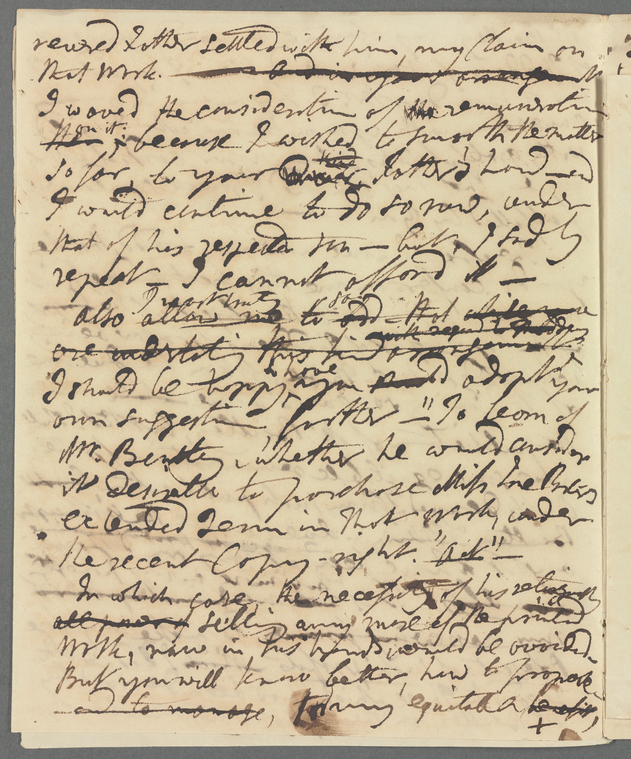 revered Father settled with him, my Claim on
that Work.
I waved the consideration of the remuneration
then on it; because I wished to smooth the matter
so far to your Father's hand - and
I would continue to do so now, under
that of his respected son - but, I sadly
repeat - I cannot afford it -
also allow me to add that while we
are
I should be happy, if you would adopt your
own suggestion further - "To learn of
Mr. Bentley, whether he would consider
it desirable to purchase Miss Jane Porter's
extended Term in that Work, under
the recent Copy-right "act"-
In which case, the necessity of his
selling any more of the printed
Work, now in his hands would be avoided.
But you will know better, how to propose
and to manage, for my equitable